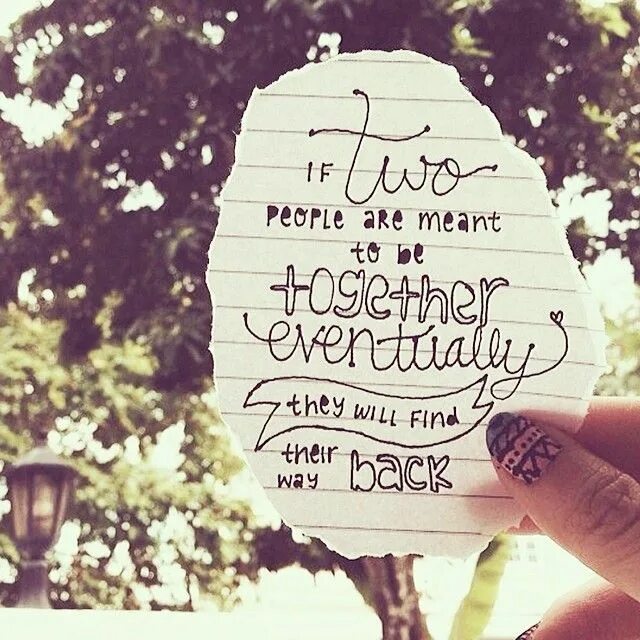 IF Two
PEOPLE ARE meant
to be
together
eventually
they WILL FIND
their
way back